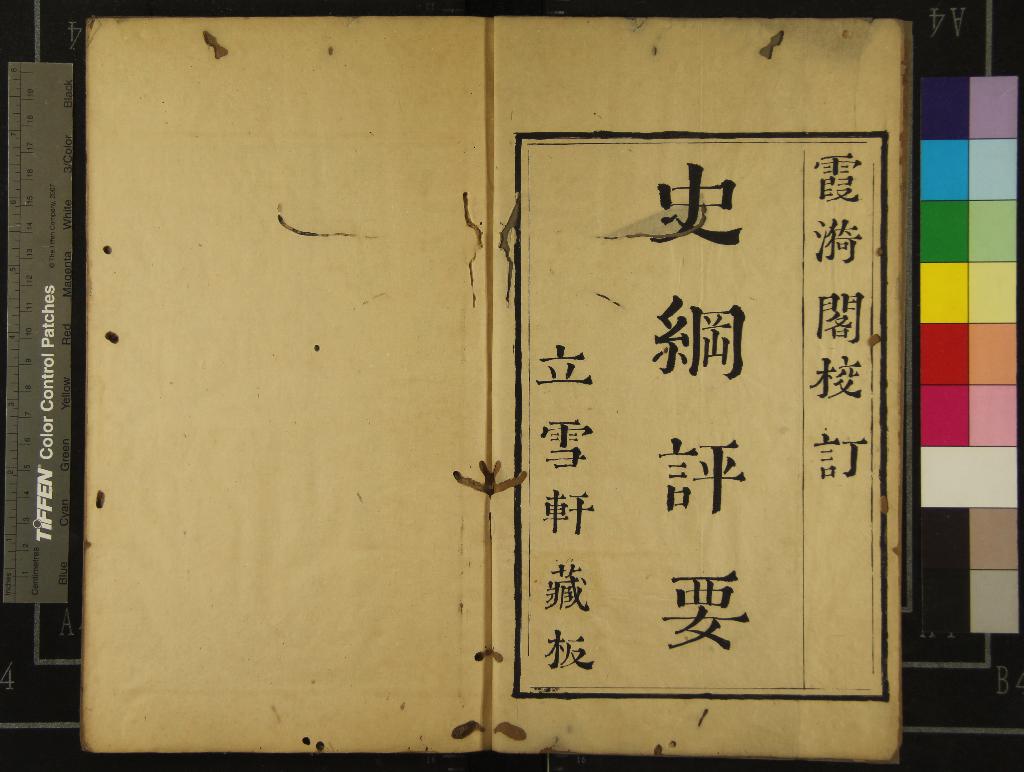 霞漪閣校訂
史綱評要
立雪軒藏板
TIFFEN Color Control Patches
© The Tiffen Company, 2007
Inches
Centimetres
Blue Cyan Green Yellow Red Magenta White 3/Color Black
A4
A4
B4